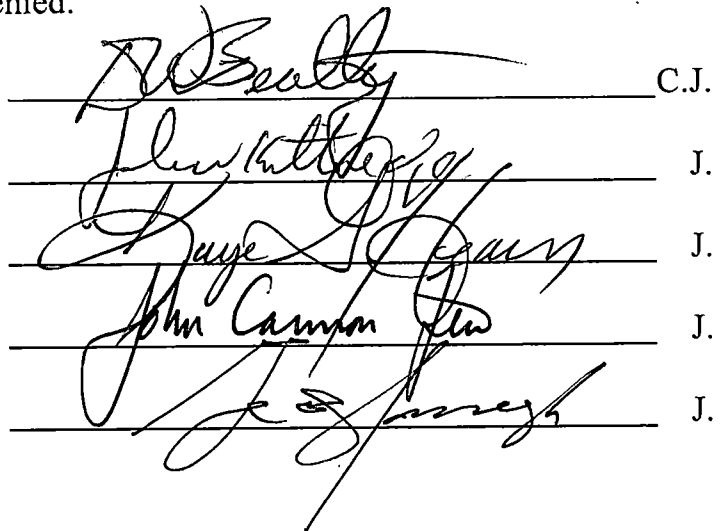 enied.
Beatty C.J.
John Kittredge J.
Kaye G Hearn J.
John Cannon Few J.
J.